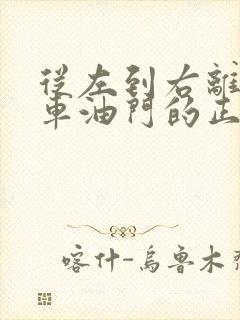 從左到右離
車油門的正
喀什-烏魯木齊